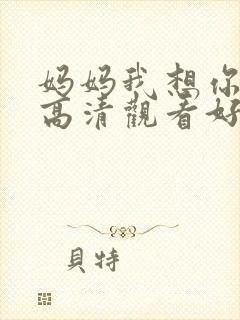 妈妈我想你
高清觀看好
貝特